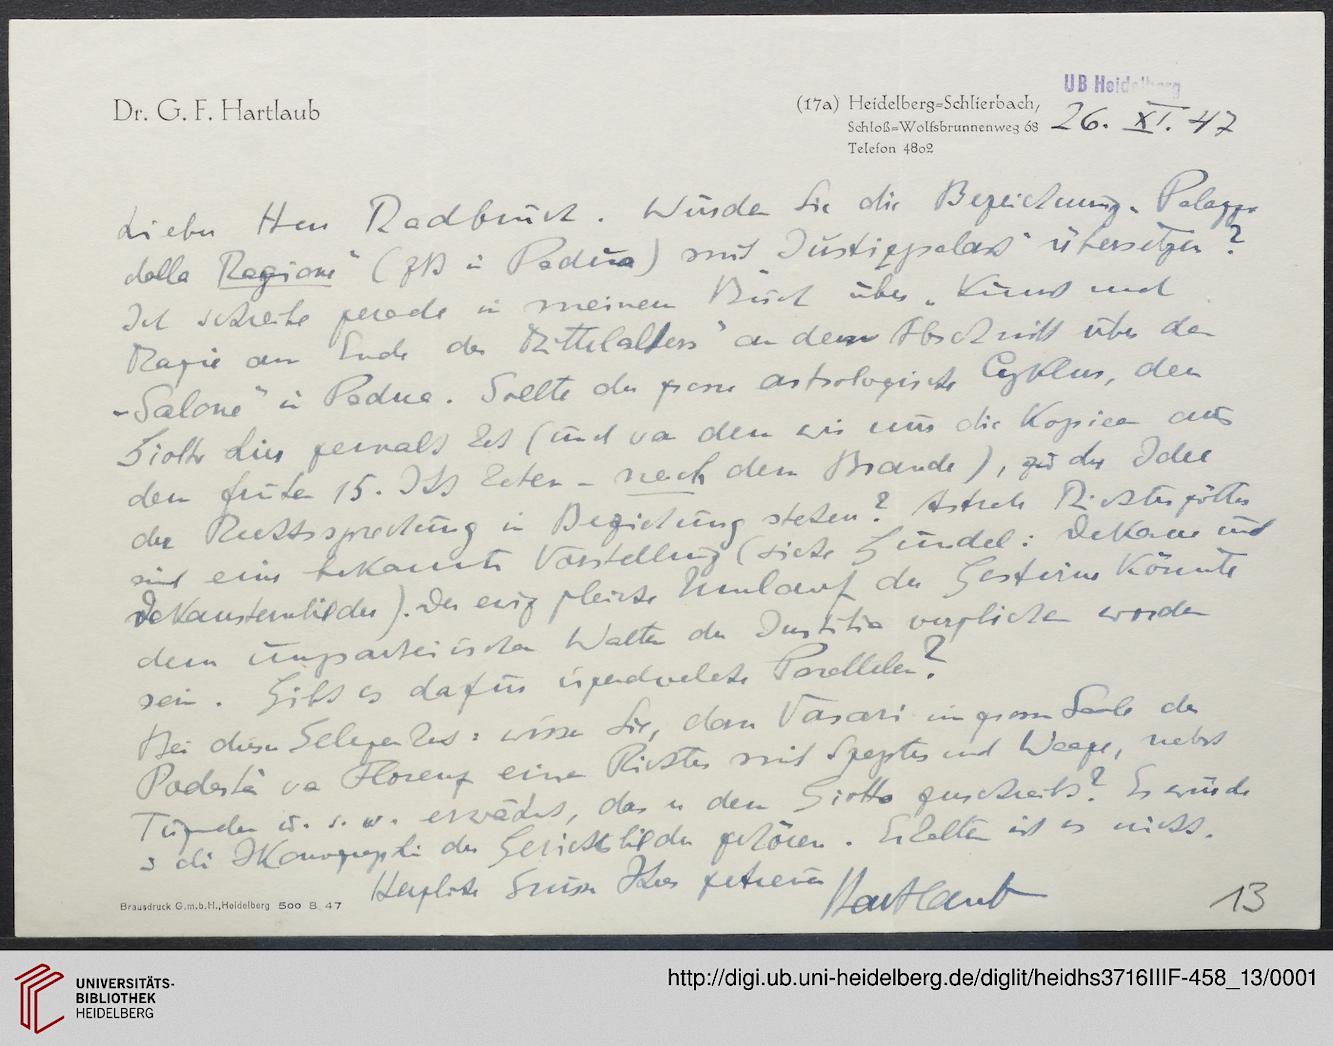 UB Heidelberg
Dr. G. F. Hartlaub
(17a) Heidelberg=Schlierbach,
Schloß=Wolfsbrunnenweg 68
Telefon 4802
26. XI. 47
Lieber Herr Radbruch. Würden Sie die Bezeichnung „Palazzo
della Ragione“ (zB in Padua) mit „Justizpalast“ übersetzen?
Ich schreibe gerade in meinem Buch über „Kunst und
Magie am Ende des Mittelalters“ an dem Abschnitt über den
„Salone“ in Padua. Sollte der grosse astrologische Cyklus, den
Giotto hier gemalt hat (und von dem wir nur die Kopien aus
dem frühen 15. Jhh haben – nach dem Brande), zu der Idee
der Rechtssprechung in Beziehung stehen? Astrale Richtergötter
sind eine bekannte Vorstellung (siehe Gundel: Dekane und
Dekansternbilder). Der ewig gleiche Umlauf der Gestirne könnte
dem unparteiischen Walten der Justitia verglichen worden
sein. Gibt es dafür irgendwelche Parallelen?
Bei dieser Gelegenheit: wissen Sie, dass Vasari im grossen Saale des
Podestà von Florenz einen Richter mit Szepter und Waage, nebst
Tugenden u. s. w. erwähnt, das er dem Giotto zuschreibt? Es würde
in die Ikonographie der Gerichtsbilder gehören. Erhalten ist es nicht.
Herzliche Grüsse Ihres getreuen Hartlaub
13
Brausdruck G.m.b.H., Heidelberg 500 8. 47
UNIVERSITÄTS-
BIBLIOTHEK
HEIDELBERG
http://digi.ub.uni-heidelberg.de/diglit/heidhs3716IIIF-458_13/0001